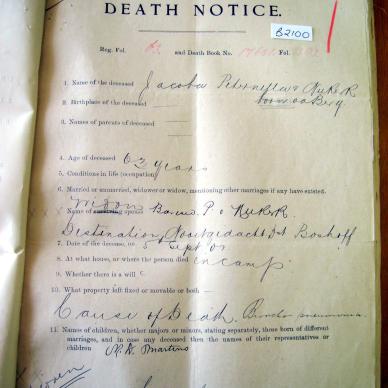 DEATH NOTICE.
B2100
Reg. Fol. 63 and Death Book No. Fol.
1. Name of the deceased Jacoba Petronella v Niekerk
2. Birthplace of the deceased
3. Names of parents of deceased
4. Age of deceased 63 years
5. Conditions in life (occupation)
6. Married or unmarried, widower or widow, mentioning other marriages if any have existed.
widow
Name of spouse P. v Niekerk
Destination, Dist Boshoff
7. Date of the decease, on 5 Sept 01
8. At what house, or where the person died in camp
9. Whether there is a will
10. What property left fixed or movable or both —
Cause of Death, Broncho pneumonia
11. Names of children, whether majors or minors, stating separately, those born of different
marriages, and in case any deceased then the names of their representatives or
children Martins